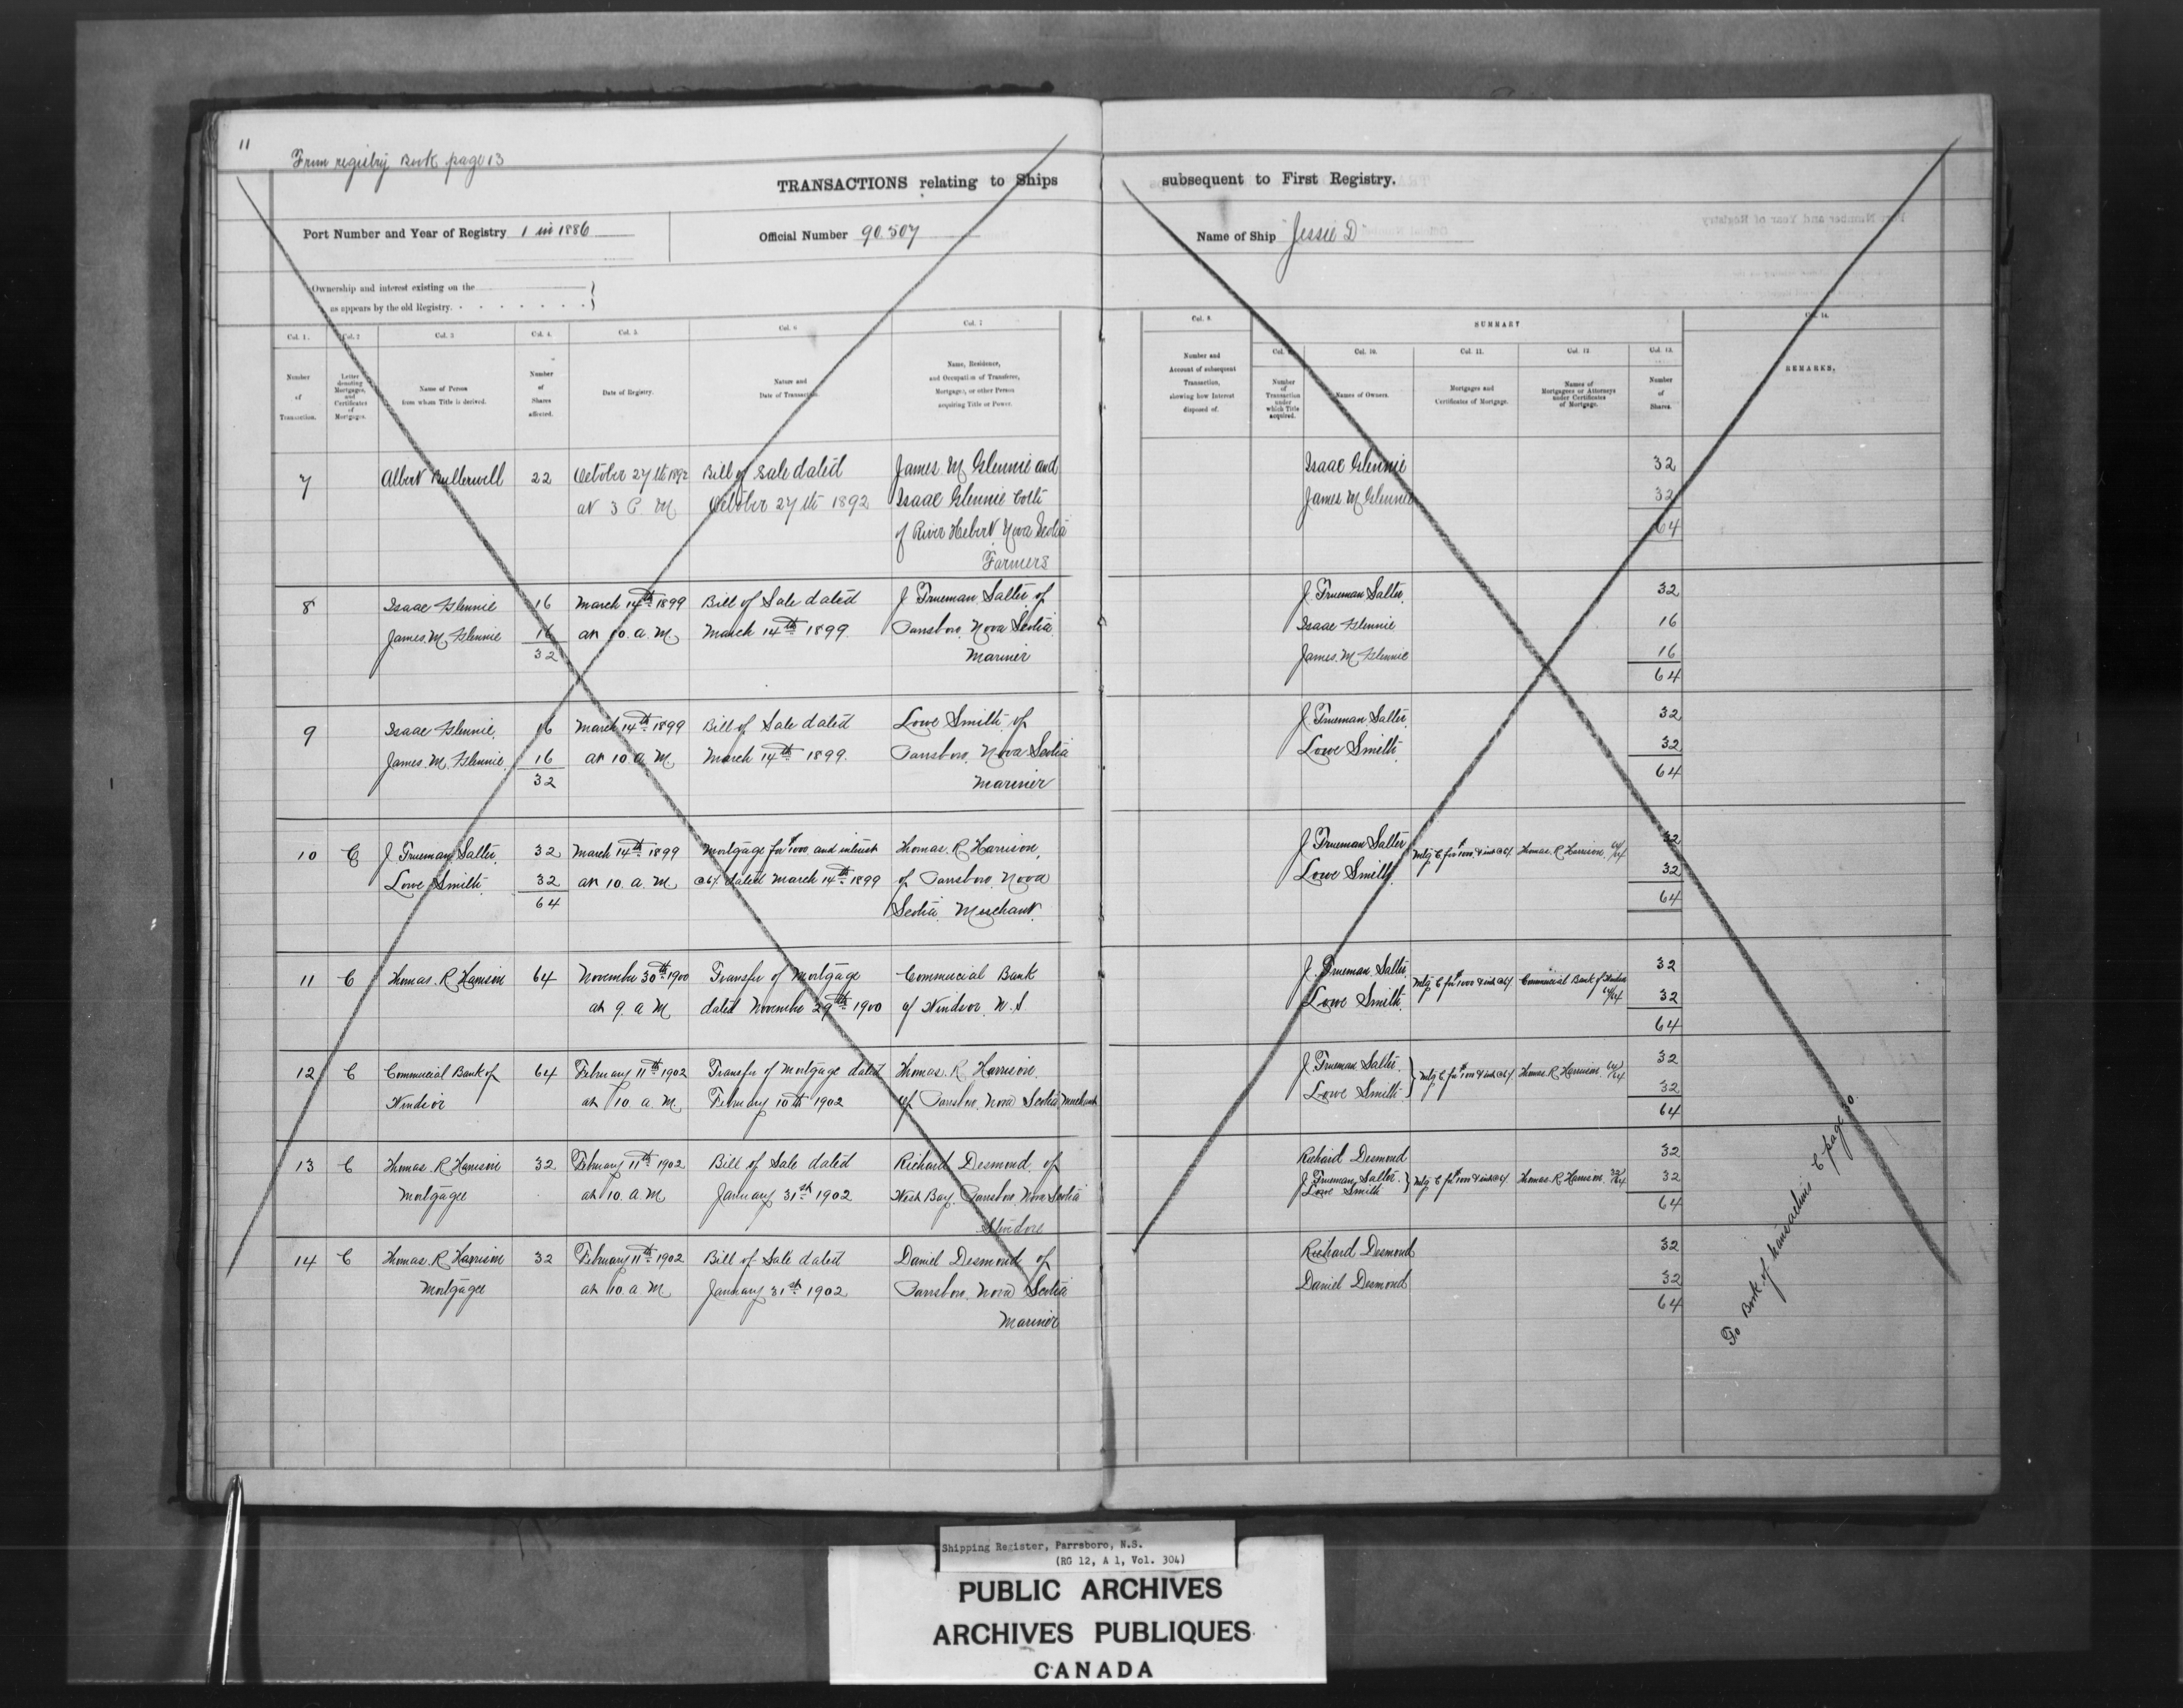 11
From registry Book page 13
TRANSACTIONS relating to Ships subsequent to First Registry.
Port Number and Year of Registry 1 in 1886
Official Number 90.507
Name of Ship "Jessie D"
Ownership and interest existing on the
as appears by the old Registry.
Col. 1. Col. 2 Col. 3 Col. 4. Col. 5. Col. 6 Col. 7
Number of Transaction.
Letter denoting Mortgages, and Certificates of Mortgages.
Name of Person from whom Title is derived.
Number of Shares affected.
Date of Registry.
Nature and Date of Transaction.
Name, Residence, and Occupation of Transferee, Mortgagee, or other Person acquiring Title or Power.
Col. 8. SUMMARY Col. 14.
Col. 9. Col. 10. Col. 11. Col. 12. Col. 13.
Number and Account of subsequent Transaction, showing how Interest disposed of.
Number of Transaction under which Title acquired.
Names of Owners.
Mortgages and Certificates of Mortgage.
Names of Mortgagees or Attorneys under Certificates of Mortgage.
Number of Shares.
REMARKS.
7 Albert 22 October 27th 1892 Bill of sale dated James M Glennie and Isaac Glennie 32
at 3 P M October 27th 1892 Isaac Glennie both James M Glennie 32
of River Hebert Nova Scotia 64
Farmers
8 Isaac Glennie 16 March 14th 1899 Bill of Sale dated J Trueman Salter of J Trueman Salter 32
James. M. Glennie 16 at 10. a. M. March 14th 1899 Parrsboro. Nova Scotia Isaac Glennie 16
32 Mariner James. M. Glennie 16
64
9 Isaac Glennie. 16 March 14th 1899 Bill of Sale dated Lowe Smith of J Trueman Salter. 32
James. M. Glennie 16 at 10. a. M. March 14th 1899. Parrsboro. Nova Scotia Lowe Smith 32
32 Mariner 64
10 C J Trueman Salter. 32 March 14th 1899 Mortgage for $1000 and interest Thomas. R Harrison, J Trueman Salter Mtg C for $1000 & int @ 6% Thomas. R. Harrison. 64/64 32
Lowe Smith. 32 at 10. a. M @ 6% dated March 14th 1899 of Parrsboro. Nova Lowe Smith 32
64 Scotia. Merchant. 64
11 C Thomas. R Harrison 64 November 30th 1900 Transfer of Mortgage Commercial Bank J. Trueman Salter Mtg C for $1000 & int @ 6% Commercial Bank of Windsor 64/64 32
at 9. a. M dated November 29th 1900 of Windsor. N. S Lowe Smith. 32
64
12 C Commercial Bank of 64 February 11th 1902 Transfer of Mortgage dated Thomas. R Harrison. J Trueman Salter. Mtg C for $1000 & int @ 6% Thomas. R Harrison. 64/64 32
Windsor at 10. a. M. February 10th 1902 of Parrsboro. Nova Scotia, Merchant Lowe Smith. 32
64
13 C Thomas R Harrison 32 February 11th 1902 Bill of Sale dated Richard Desmond. of Richard Desmond 32
Mortgagee at 10. a. M January 31st 1902 West Bay. Parrsboro. Nova Scotia J. Trueman Salter. Mtg C for $1000 & int @ 6% Thomas. R. Harrison. 32/64 32
Stevedore Lowe Smith 64
14 C Thomas. R Harrison 32 February 11th 1902 Bill of Sale dated Daniel Desmond of Richard Desmond 32
Mortgagee at 10. a. M January 31st 1902 Parrsboro. Nova Scotia Daniel Desmond 32
Mariner 64
To Book of transactions C page 30
Shipping Register, Parrsboro, N.S.
(RG 12, A 1, Vol. 304)
PUBLIC ARCHIVES
ARCHIVES PUBLIQUES
CANADA